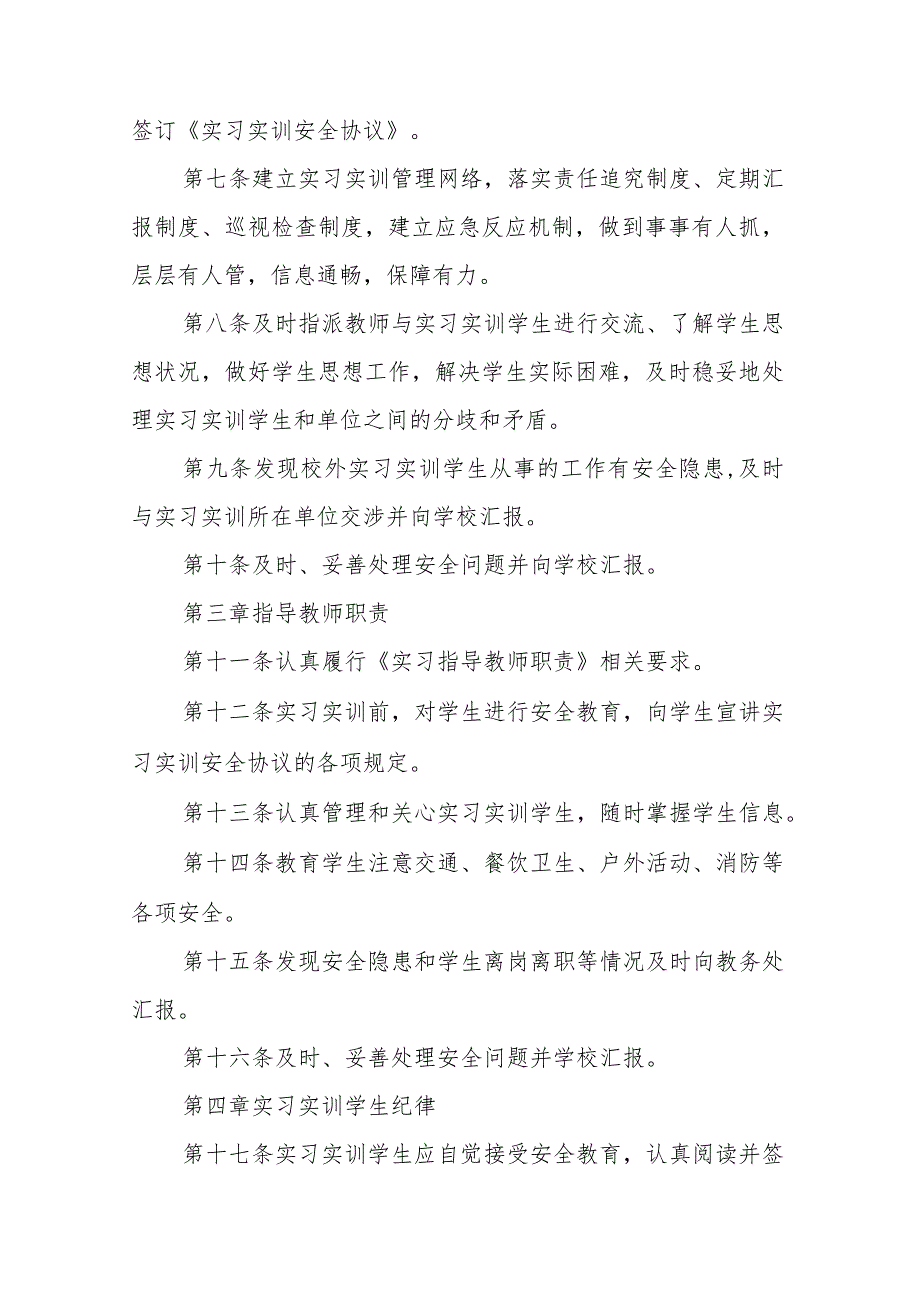 签订《实习实训安全协议》。
第七条建立实习实训管理网络，落实责任追究制度、定期汇
报制度、巡视检查制度，建立应急反应机制，做到事事有人抓，
层层有人管，信息通畅，保障有力。
第八条及时指派教师与实习实训学生进行交流、了解学生思
想状况，做好学生思想工作，解决学生实际困难，及时稳妥地处
理实习实训学生和单位之间的分歧和矛盾。
第九条发现校外实习实训学生从事的工作有安全隐患,及时
与实习实训所在单位交涉并向学校汇报。
第十条及时、妥善处理安全问题并向学校汇报。
第三章指导教师职责
第十一条认真履行《实习指导教师职责》相关要求。
第十二条实习实训前，对学生进行安全教育，向学生宣讲实
习实训安全协议的各项规定。
第十三条认真管理和关心实习实训学生，随时掌握学生信息。
第十四条教育学生注意交通、餐饮卫生、户外活动、消防等
各项安全。
第十五条发现安全隐患和学生离岗离职等情况及时向教务处
汇报。
第十六条及时、妥善处理安全问题并学校汇报。
第四章实习实训学生纪律
第十七条实习实训学生应自觉接受安全教育，认真阅读并签